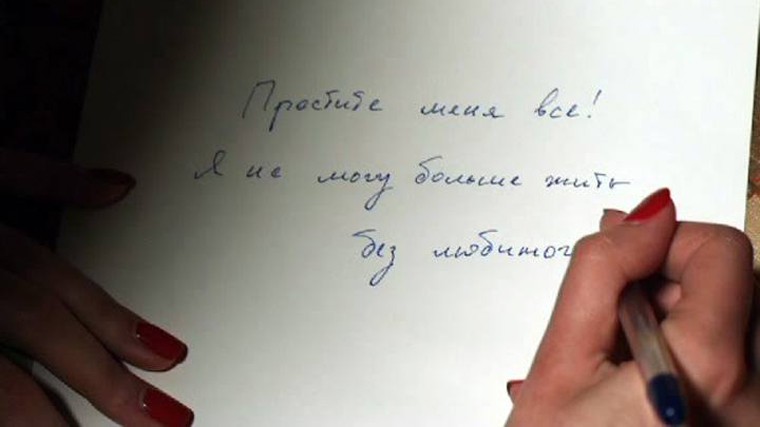 Простите меня все!
Я не могу больше жить
без любимог